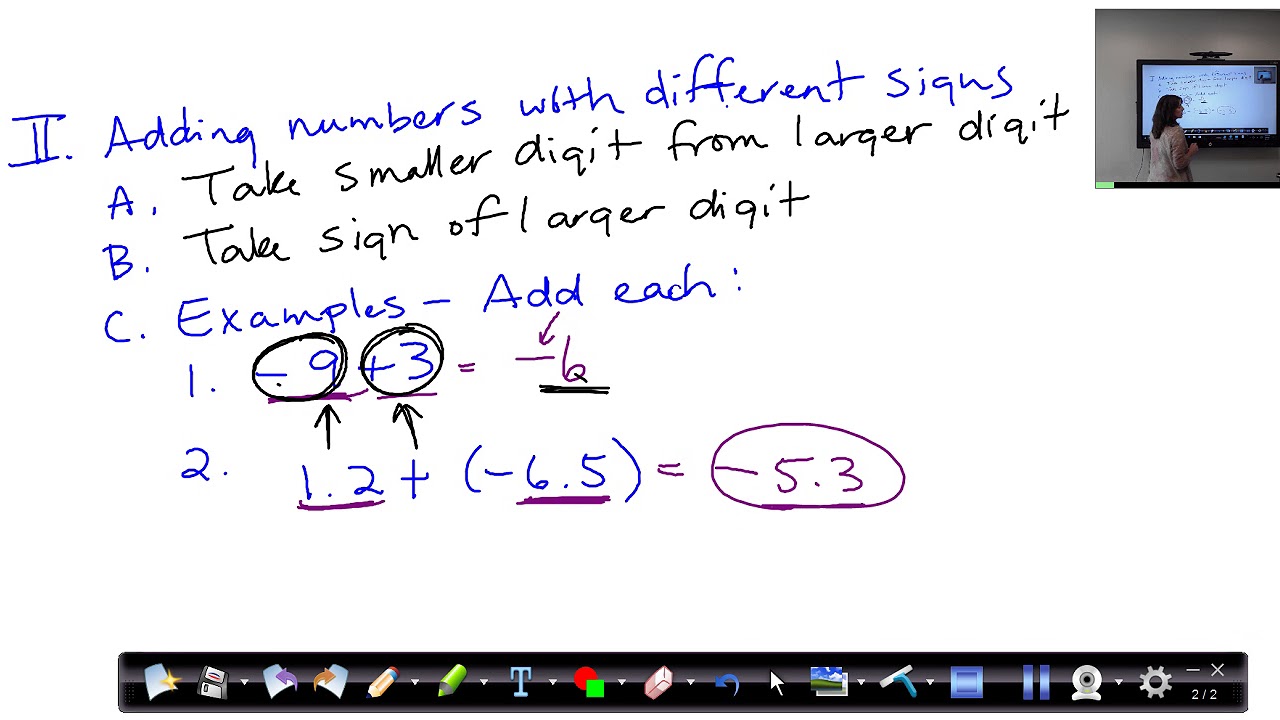 II. Adding numbers with different signs
A. Take smaller digit from larger digit
B. Take sign of larger digit
C. Examples - Add each:
1. -9 +3 = -6
2. 1.2 + (-6.5) = -5.3
T
2/2